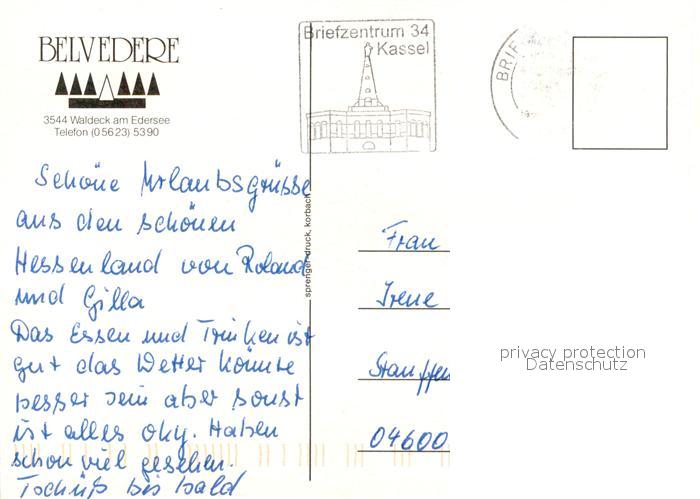 BELVEDERE
3544 Waldeck am Edersee
Telefon (05623) 5390
Briefzentrum 34
Kassel
BRIE
Schöne Urlaubsgrüsse
aus den schönen
Hessenland von Roland
und Gilla
Das Essen und Trinken ist
gut das Wetter könnte
besser sein aber sonst
ist alles oky. Haben
schon viel gesehen.
Tschüß bis bald
sprenger druck, korbach
Frau
Irene
Stauffen
04600
privacy protection
Datenschutz